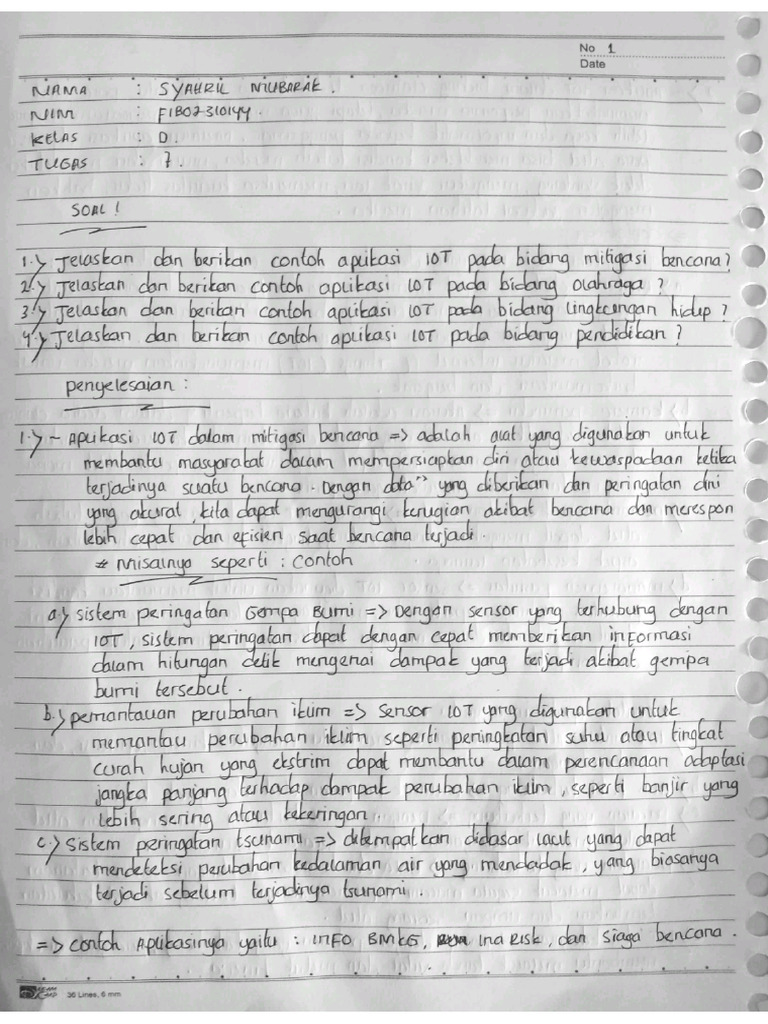 No 1
Date
NAMA : SYAHRIL MUBARAK.
NIM : F1B02310144.
KELAS : D.
TUGAS : 7.
SOAL !
1.) Jelaskan dan berikan contoh aplikasi IOT pada bidang mitigasi bencana?
2.) Jelaskan dan berikan contoh aplikasi IOT pada bidang olahraga ?
3.) Jelaskan dan berikan contoh aplikasi IOT pada bidang lingkungan hidup ?
4.) Jelaskan dan berikan contoh aplikasi IOT pada bidang pendidikan ?
penyelesaian :
1.) ~ Aplikasi IOT dalam mitigasi bencana => adalah alat yang digunakan untuk
membantu masyarakat dalam mempersiapkan diri atau kewaspadaan ketika
terjadinya suatu bencana. Dengan data" yang diberikan dan peringatan dini
yang akurat, kita dapat mengurangi kerugian akibat bencana dan merespon
lebih cepat dan efisien saat bencana terjadi.
* Misalnya seperti : Contoh
a.) sistem peringatan Gempa Bumi => Dengan sensor yang terhubung dengan
IOT, sistem peringatan dapat dengan cepat memberikan informasi
dalam hitungan detik mengenai dampak yang terjadi akibat gempa
bumi tersebut.
b.) pemantauan perubahan iklim => Sensor IOT yang digunakan untuk
memantau perubahan iklim seperti peningkatan suhu atau tingkat
curah hujan yang ekstrim dapat membantu dalam perencanaan adaptasi
jangka panjang terhadap dampak perubahan iklim, seperti banjir yang
lebih sering atau kekeringan.
c.) Sistem peringatan tsunami => ditempatkan didasar laut yang dapat
mendeteksi perubahan kedalaman air yang mendadak, yang biasanya
terjadi sebelum terjadinya tsunami.
=> contoh Aplikasinya yaitu : INFO BMKG, Ina Risk, dan Siaga bencana.
36 Lines, 6 mm